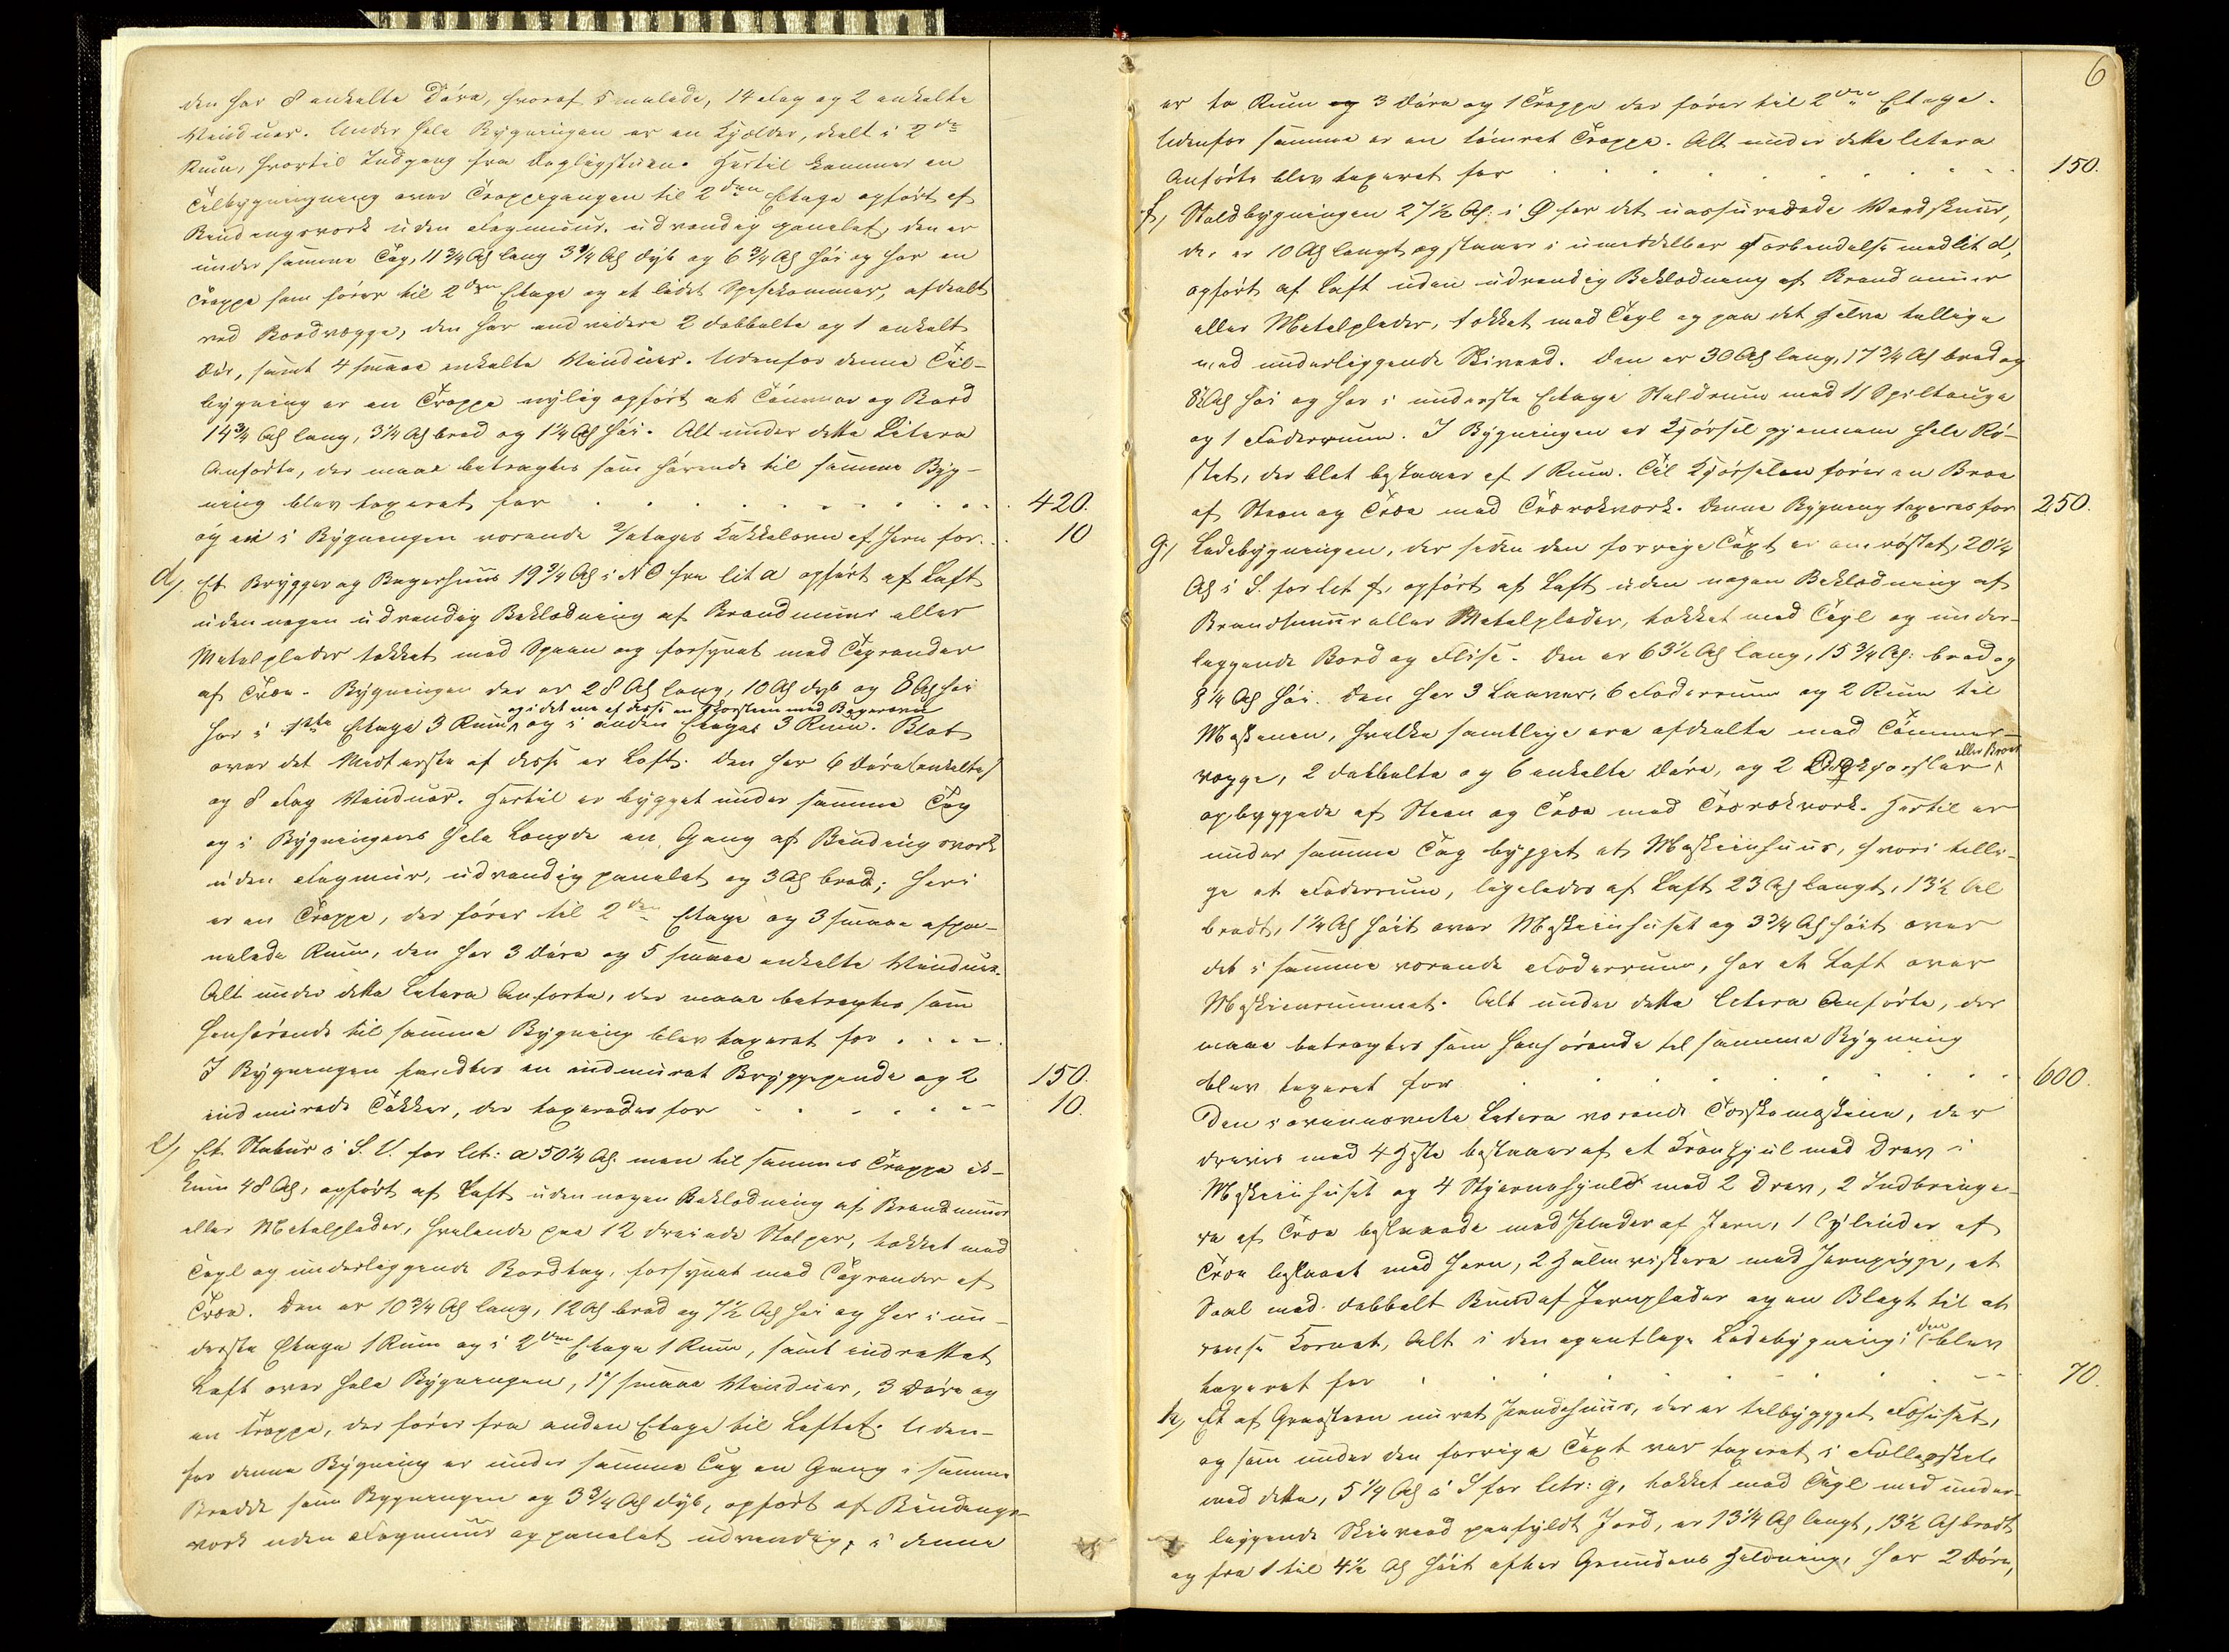 den har 8 enkelte Döre, hvoraf 5 malede, 14 Fag og 2 enkelte
Vinduer. Under hele Bygningen er en Kjælder, deelt i 2de
Rum, hvortil Indgang fra Dagligstuen. Hertil kommer en
Tilbygningning over Trappegangen til 2den Etage opført af
Bindingsverk uden Fagmuur, udvendig panelet, den er
under samme Tag, 11 3/4 Al lang 3 1/4 Al dyb og 6 3/4 Al høi og har en
Trappe som fører til 2den Etage og et lidet Spisekammer, afdeelt
ved Bordvægge, den har endvidere 2 dobbelte og 1 enkelt
Dör, samt 4 smaae enkelte Vinduer. Udenfor denne Til-
bygning er en Trappe nylig opført af Tømmer og Bord
14 3/4 Al lang, 3 1/4 Al bred og 1 1/4 Al høi. Alt under dette Litera
Anførte, der maae betragtes som hörende til samme Byg-
ning blev taxeret for . . . . . . . . . 420.
og en i Bygningen værende 2/etages Kakkelovn af Jern for. . 10
d, Et Brygger og Bagerhuus 19 3/4 Al i NO fra lit a opført af Laft
uden nogen udvendig Beklædning af Brandmuur eller
Metalplader tækket med Spaan og forsynet med Tagrender
af Træe. Bygningen der er 28 Al lang, 10 Al dyb og 8 Al høi
og i det ene af disse en Skorsteen med Bagerovn
har i 1ste Etage 3 Rum, og i anden Etage 3 Rum. Blot
over det Midterste af disse er Loft. Den har 6 Döre (enkelte)
og 8 Fag Vinduer. Hertil er bygget under samme Tag
og i Bygningens hele Længde en Gang af Bindingsverk
uden Fagmuur, udvendig panelet og 3 Al bred; heri
er en Trappe, der fører til 2den Etage og 3 smaae afpa-
nelede Rum, den har 3 Döre og 5 smaae enkelte Vinduer.
Alt under dette Litera Anførte, der maae betragtes som
henhørende til samme Bygning blev taxeret for . . . .
I Bygningen fandtes en indmuret Bryggepande og 2 150.
indmurede Takker, der taxeredes for . . . . . . 10.
e, Et Stabur i S.V. for lit: a 50 1/4 Al. men til sammes Trappe ik-
kun 48 Al, opført af Laft uden nogen Beklædning af Brandmuur
eller Metalplader, hvilende paa 12 dreiede Stolper, tækket med
Tagl og underliggende Bordtag, forsynet med Tagrender af
Træe. Den er 10 3/4 Al lang, 12 Al bred og 7 1/2 Al høi og har i un-
derste Etage 1 Rum og i 2den Etage 1 Rum, samt indrettet
Loft over hele Bygningen, 17 smaae Vinduer, 3 Döre og
en Trappe, der fører fra anden Etage til Loftet. Uden-
for denne Bygning er under samme Tag en Gang i samme
Bredde som Bygningen og 3 3/4 Al dyb, opført af Bindings-
verk uden Fagmuur og panelet udvendig, i denne
6
er to Rum og 3 Döre og 1 Trappe der fører til 2den Etage.
Udenfor samme er en tømret Trappe. Alt under dette litera
Anførte blev taxeret for . . . . . . . . . 150.
f, Staldbygningen 27 1/2 Al: i Ø for det uassurerede Vedskuur,
der er 10 Al langt og staaer i umiddelbar Forbindelse med lit d,
opført af Laft uden udvendig Beklædning af Brandmuur
eller Metalplader, tækket med Tegl og paa det halve tillige
med underliggende Skived. Den er 30 Al lang, 17 3/4 Al bred og
8 1/2 Al høi og har i underste Etage Staldrum med 11 Spiltouge
og 1 Foderrum. I Bygningen er Kjørsel gjennem hele Rö-
stet, der blot bestaaer af 1 Rum. Til Kjørselen fører en Broe
af Steen og Træe med Træverkverk. Denne Bygning taxeres for 250.
g, Ladebygningen, der siden den forrige Taxt er omröstet, 20 1/4
Al i S. for lit f, opført af Laft uden nogen Beklædning af
Brandmuur eller Metalplader, tækket med Tegl og under-
liggende Bord og Flise. Den er 63 1/2 Al lang, 15 3/4 Al: bred og
8 1/4 Al høi. Den har 3 Laaver, 6 Foderrum og 2 Rum til
Maskinen, hvilke samtlige ere afdeelte med Tømmer-
eller Broer
vægge, 2 dobbelte og 6 enkelte Döre, og 2
opbyggede af Steen og Træe med Trærækverk. Hertil er
under samme Tag bygget et Maskiinhuus, hvori tilli-
ge et Foderrum, ligeledes af Laft 23 Al langt, 13 1/2 Al
bredt, 1 1/4 Al høit over Maskiinhuset og 3 3/4 Al høit over
det i samme værende Foderrum, har et Loft over
Maskiinrummet. Alt under dette litera Anførte, der
maae betragtes som henhørende til samme Bygning
blev taxeret for . . . . . . . . . 600.
Den i ovennævnte Litera værende Tærskemaskiin, der
drives med 4 Heste bestaaer af et Kronhjul med Drev i
Maskiinhuset og 4 Stjernehjuld med 2 Drev, 2 Indbringe-
re af Træe beslaaede med Plader af Jern, 1 Cylinder af
Træe beslaaet med Jern, 2 Halmrystere med Jernpigge, et
Saal med dobbelt Bund af Jernplader og en Blagt til at
rense Kornet, Alt i den egentlige Ladebygning; den blev
taxeret for . . . . . . . . . 70.
h, Et af Graasteen muret Pandehuus, der er tilbygget Fähuset,
og som under den forrige Taxt var taxeret i Fællesskab
med dette, 5 1/4 Al i S for litr: g, tækket med Tegl med under-
liggende Skived paafyldt Jord, er 13 1/4 Al langt, 13 1/2 Al bredt
og fra 1 til 4 1/2 Al høit efter Grundens Heldning, har 2 Döre,